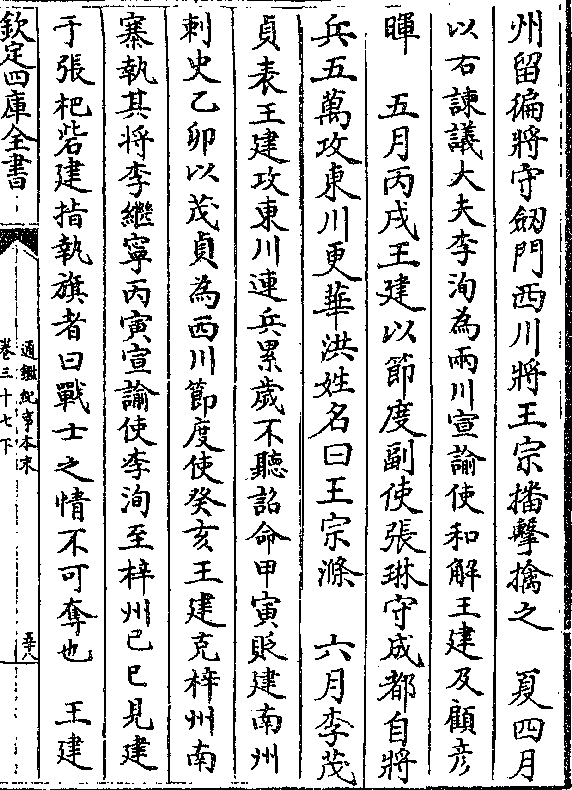 州留偏將守劔門西川將王宗播擊擒之　夏四月
以右諫議大夫李洵為兩川宣諭使和解王建及顧彥
暉　五月丙戌王建以節度副使張琳守成都自將
兵五萬攻東川更華洪姓名曰王宗滌　六月李茂
貞表王建攻東川連兵累歲不聽詔命甲寅貶建南州
刺史乙卯以茂貞為西川節度使癸亥王建克梓州南
寨執其将李繼寧丙寅宣諭使李洵至梓州己巳見建
于張杷砦建指執旗者曰戰士之情不可奪也　王建
欽定四庫全書
通鑑紀事本末
卷三十七下
五十八